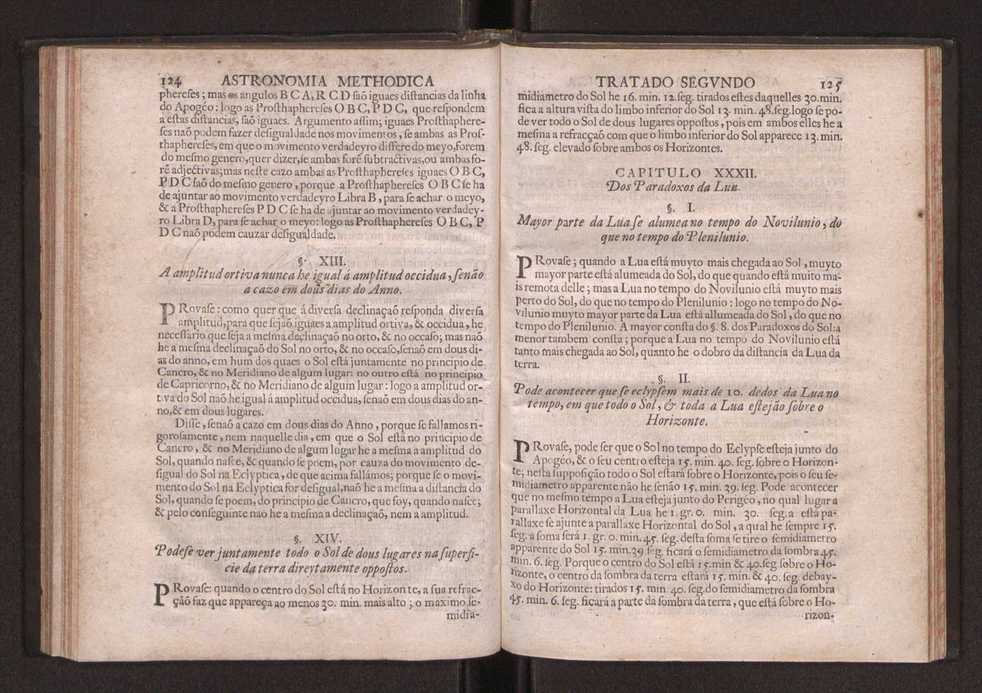 124 ASTRONOMIA METHODICA
phereſes; mas os angulos B C A, R C D ſaõ iguaes diſtancias da linha
do Apogéo: logo as Proſthaphereſes O B C, P D C, que reſpondem
a eſtas diſtancias, ſaõ iguaes. Argumento aſſim; iguaes Proſthaphere-
ſes naõ podem fazer deſigualdade nos movimentos, ſe ambas as Proſ-
thaphereſes, em que o movimento verdadeyro differe do meyo, forem
do meſmo genero, quer dizer, ſe ambas forẽ ſubtractivas, ou ambas fo-
rẽ adjectivas; mas neſte cazo ambas as Proſthaphereſes iguaes O B C,
P D C ſaõ do meſmo genero, porque a Proſthaphereſes O B C ſe ha
de ajuntar ao movimento verdadeyro Libra B, para ſe achar o meyo,
& a Proſthaphereſes P D C ſe ha de ajuntar ao movimento verdadey-
ro Libra D, para ſe achar o meyo: logo as Proſthaphereſes O B C, P
D C naõ podem cauzar deſigualdade.
§. XIII.
A amplitud ortiva nunca he igual á amplitud occidua, ſenão
a cazo em dous dias do Anno.
PRovaſe: como quer que á diverſa declinaçaõ reſponda diverſa
amplitud, para que ſejaõ iguaes a amplitud ortiva, & occidua, he
neceſſario que ſeja a meſma declinaçaõ no orto, & no occaſo; mas naõ
he a meſma declinaçaõ do Sol no orto, & no occaſo, ſenaõ em dous di-
as do anno, em hum dos quaes o Sol eſtá juntamente no principio de
Cancro, & no Meridiano de algum lugar: no outro eſtá no principio
de Capricorno, & no Meridiano de algum lugar: logo a amplitud or-
tiva do Sol naõ he igual á amplitud occidua, ſenaõ em dous dias do an-
no, & em dous lugares.
Diſſe, ſenaõ a cazo em dous dias do Anno, porque ſe fallamos ri-
goroſamente, nem naquelle dia, em que o Sol eſtà no principio de
Cancro, & no Meridiano de algum lugar he a meſma a amplitud do
Sol, quando naſce, & quando ſe poem, por cauza do movimento de-
ſigual do Sol na Eclyptica, de que acima fallámos; porque ſe o movi-
mento do Sol na Eclyptica for deſigual, naõ he a meſma a diſtancia do
Sol, quando ſe poem, do principio de Cancro, que foy, quando naſce;
& pelo conſeguinte naõ he a meſma a declinaçaõ, nem a amplitud.
§. XIV.
Podeſe ver juntamente todo o Sol de dous lugares na ſuperfi-
cie da terra direytamente oppoſtos.
PRovaſe: quando o centro do Sol eſtá no Horizonte, a ſua refrac-
çaõ faz que appareça ao menos 30. min. mais alto; o maximo ſe-
midia-
TRATADO SEGVNDO 125
midiametro do Sol he 16. min. 12. ſeg. tirados eſtes daquelles 30. min.
fica a altura viſta do limbo inferior do Sol 13. min. 48. ſeg. logo ſe po-
de ver todo o Sol de dous lugares oppoſtos, pois em ambos elles he a
meſma a refracçaõ com que o limbo inferior do Sol apparece 13. min.
48. ſeg. elevado ſobre ambos os Horizontes.
CAPITULO XXXII.
Dos Paradoxos da Lua.
§. I.
Mayor parte da Lua ſe alumea no tempo do Novilunio, do
que no tempo do Plenilunio.
PRovaſe; quando a Lua eſtá muyto mais chegada ao Sol, muyto
mayor parte eſtá alumeada do Sol, do que quando eſtá muito ma-
is remota delle; mas a Lua no tempo do Novilunio eſtá muyto mais
perto do Sol, do que no tempo do Plenilunio: logo no tempo do No-
vilunio muyto mayor parte da Lua eſtá allumeada do Sol, do que no
tempo do Plenilunio. A mayor conſta do §. 8. dos Paradoxos do Sol: a
menor tambem conſta; porque a Lua no tempo do Novilunio eſtá
tanto mais chegada ao Sol, quanto he o dobro da diſtancia da Lua da
terra.
§. II.
Pode acontecer que ſe eclypſem mais de 10. dedos da Lua no
tempo, em que todo o Sol, & toda a Lua eſtejão ſobre o
Horizonte.
PRovaſe, pode ſer que o Sol no tempo do Eclypſe eſteja junto do
Apogéo, & o ſeu centro eſteja 15. min. 40. ſeg. ſobre o Horizon-
te; neſta ſuppoſiçaõ todo o Sol eſtará ſobre o Horizonte, pois o ſeu ſe-
midiametro apparente naõ he ſenão 15. min. 39. ſeg. Pode acontecer
que no meſmo tempo a Lua eſteja junto do Perigeo, no qual lugar a
parallaxe Horizontal da Lua he 1. gr. 0. min. 30. ſeg. a eſta pa-
rallaxe ſe ajunte a parallaxe Horizontal do Sol, a qual he ſempre 15.
ſeg. a ſoma ſerá 1. gr. 0. min. 45. ſeg. deſta ſoma ſe tire o ſemidiametro
apparente do Sol 15. min. 39 ſeg. ficará o ſemidiametro da ſombra 45.
min. 6. ſeg. Porque o centro do Sol eſtá 15. min & 40. ſeg ſobre o Ho-
rizonte, o centro da ſombra da terra eſtará 15. min. & 40. ſeg. debay-
xo do Horizonte: tirados 15. min. 40. ſeg. do ſemidiametro da ſombra
45. min. 6. ſeg. ficará a parte da ſombra da terra, que eſtá ſobre o Ho-
rizon-